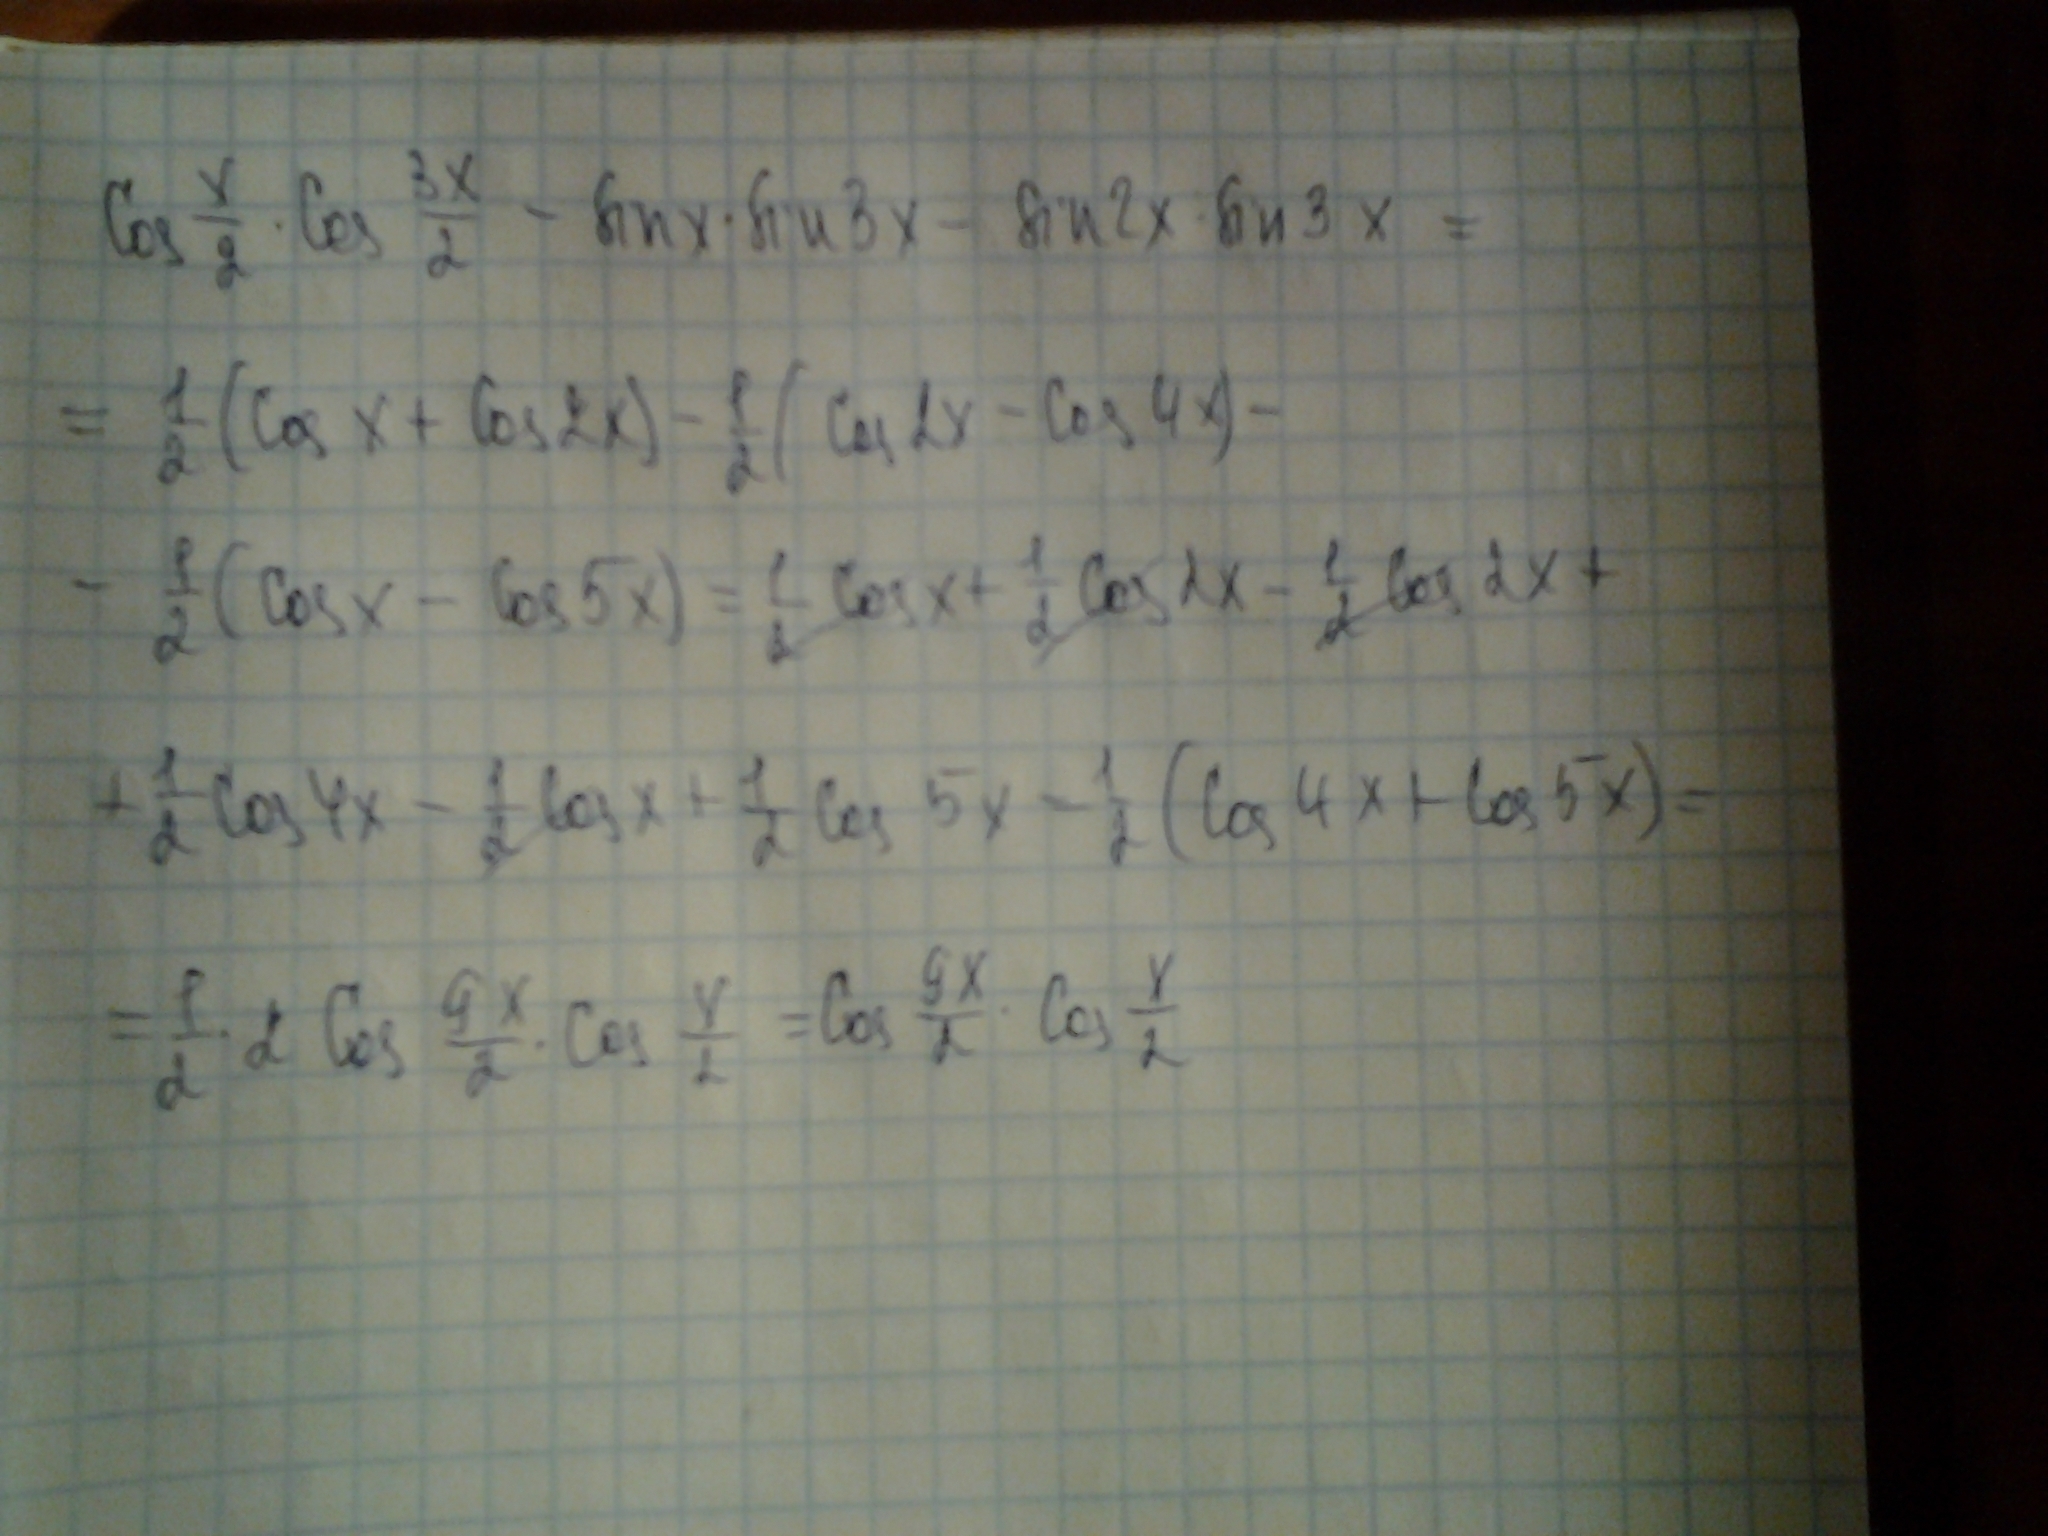 Cos x/2 · Cos 3x/2 - sin x · sin 3x - sin 2x · sin 3x =
= 1/2 (Cos x + Cos 2x) - 1/2 (Cos 2x - Cos 4x) -
- 1/2 (Cos x - Cos 5x) = 1/2 Cos x + 1/2 Cos 2x - 1/2 Cos 2x +
+ 1/2 Cos 4x - 1/2 Cos x + 1/2 Cos 5x - 1/2 (Cos 4x + Cos 5x) =
= 1/2 · 2 Cos 9x/2 · Cos x/2 = Cos 9x/2 · Cos x/2